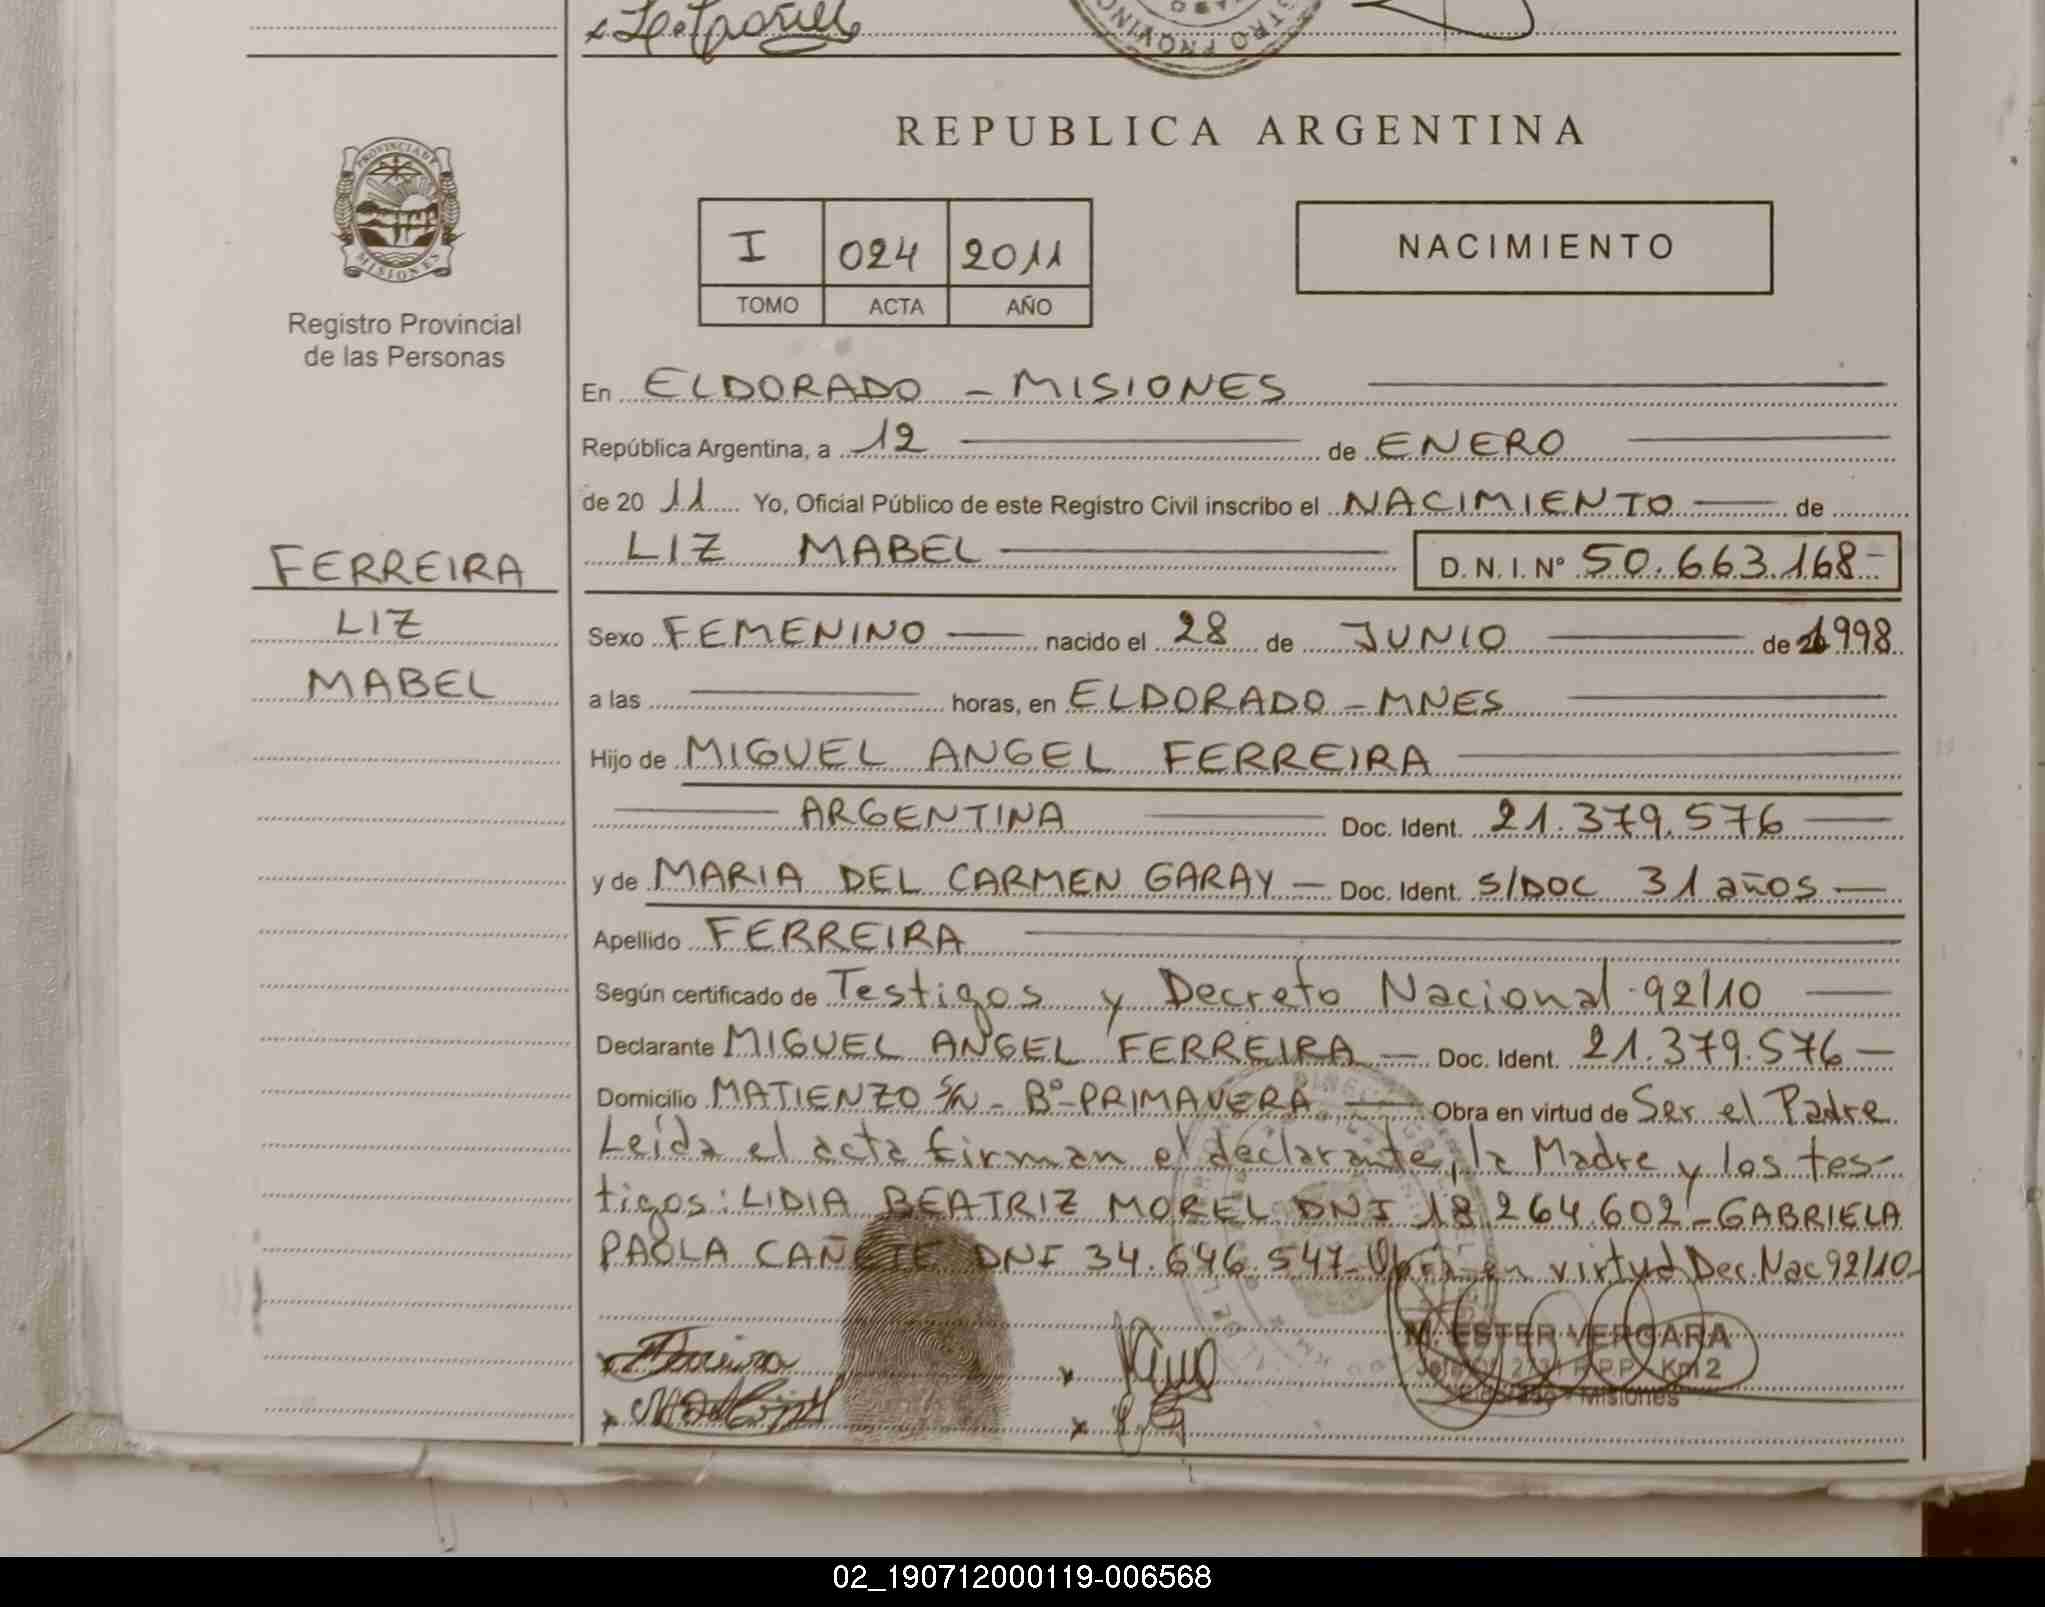 REPUBLICA ARGENTINA
PROVINCIA DE
MISIONES
Registro Provincial
de las Personas
I 024 2011
TOMO ACTA AÑO
NACIMIENTO
En ELDORADO - MISIONES
República Argentina, a 12 de ENERO
de 20 11 Yo, Oficial Público de este Registro Civil inscribo el NACIMIENTO de
LIZ MABEL D.N.I. Nº 50.663.168-
FERREIRA
LIZ
MABEL
Sexo FEMENINO nacido el 28 de JUNIO de 1998
a las horas, en ELDORADO - MNES
Hijo de MIGUEL ANGEL FERREIRA
ARGENTINA Doc. Ident. 21.379.576
y de MARIA DEL CARMEN GARAY - Doc. Ident. S/DOC 31 años -
Apellido FERREIRA
Según certificado de Testigos y Decreto Nacional 92/10
Declarante MIGUEL ANGEL FERREIRA - Doc. Ident. 21.379.576 -
Domicilio MATIENZO S/N - Bº-PRIMAVERA Obra en virtud de Ser el Padre
Leida el acta firman el declarante, la Madre y los tes-
tigos: LIDIA BEATRIZ MOREL DNI 18.264.602 - GABRIELA
PAOLA CAÑETE DNI 34.646.547- Obra en virtud Dec. Nac 92/10-
M. ESTER VERGARA
R.P.P. Km 2
Eldorado - Misiones
02_190712000119-006568